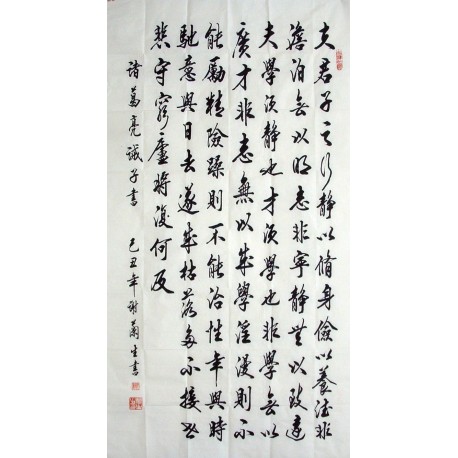 夫君子之行静以脩身儉以養德非
澹泊無以明志非寧静無以致遠
夫學須静也才須學也非學無以
廣才非志無以成學淫漫則不
能勵精險躁則不能治性年與時
馳意與日去遂成枯落多不接世
悲守窮廬將復何及
諸葛亮誡子書 己丑年謝蘭生書